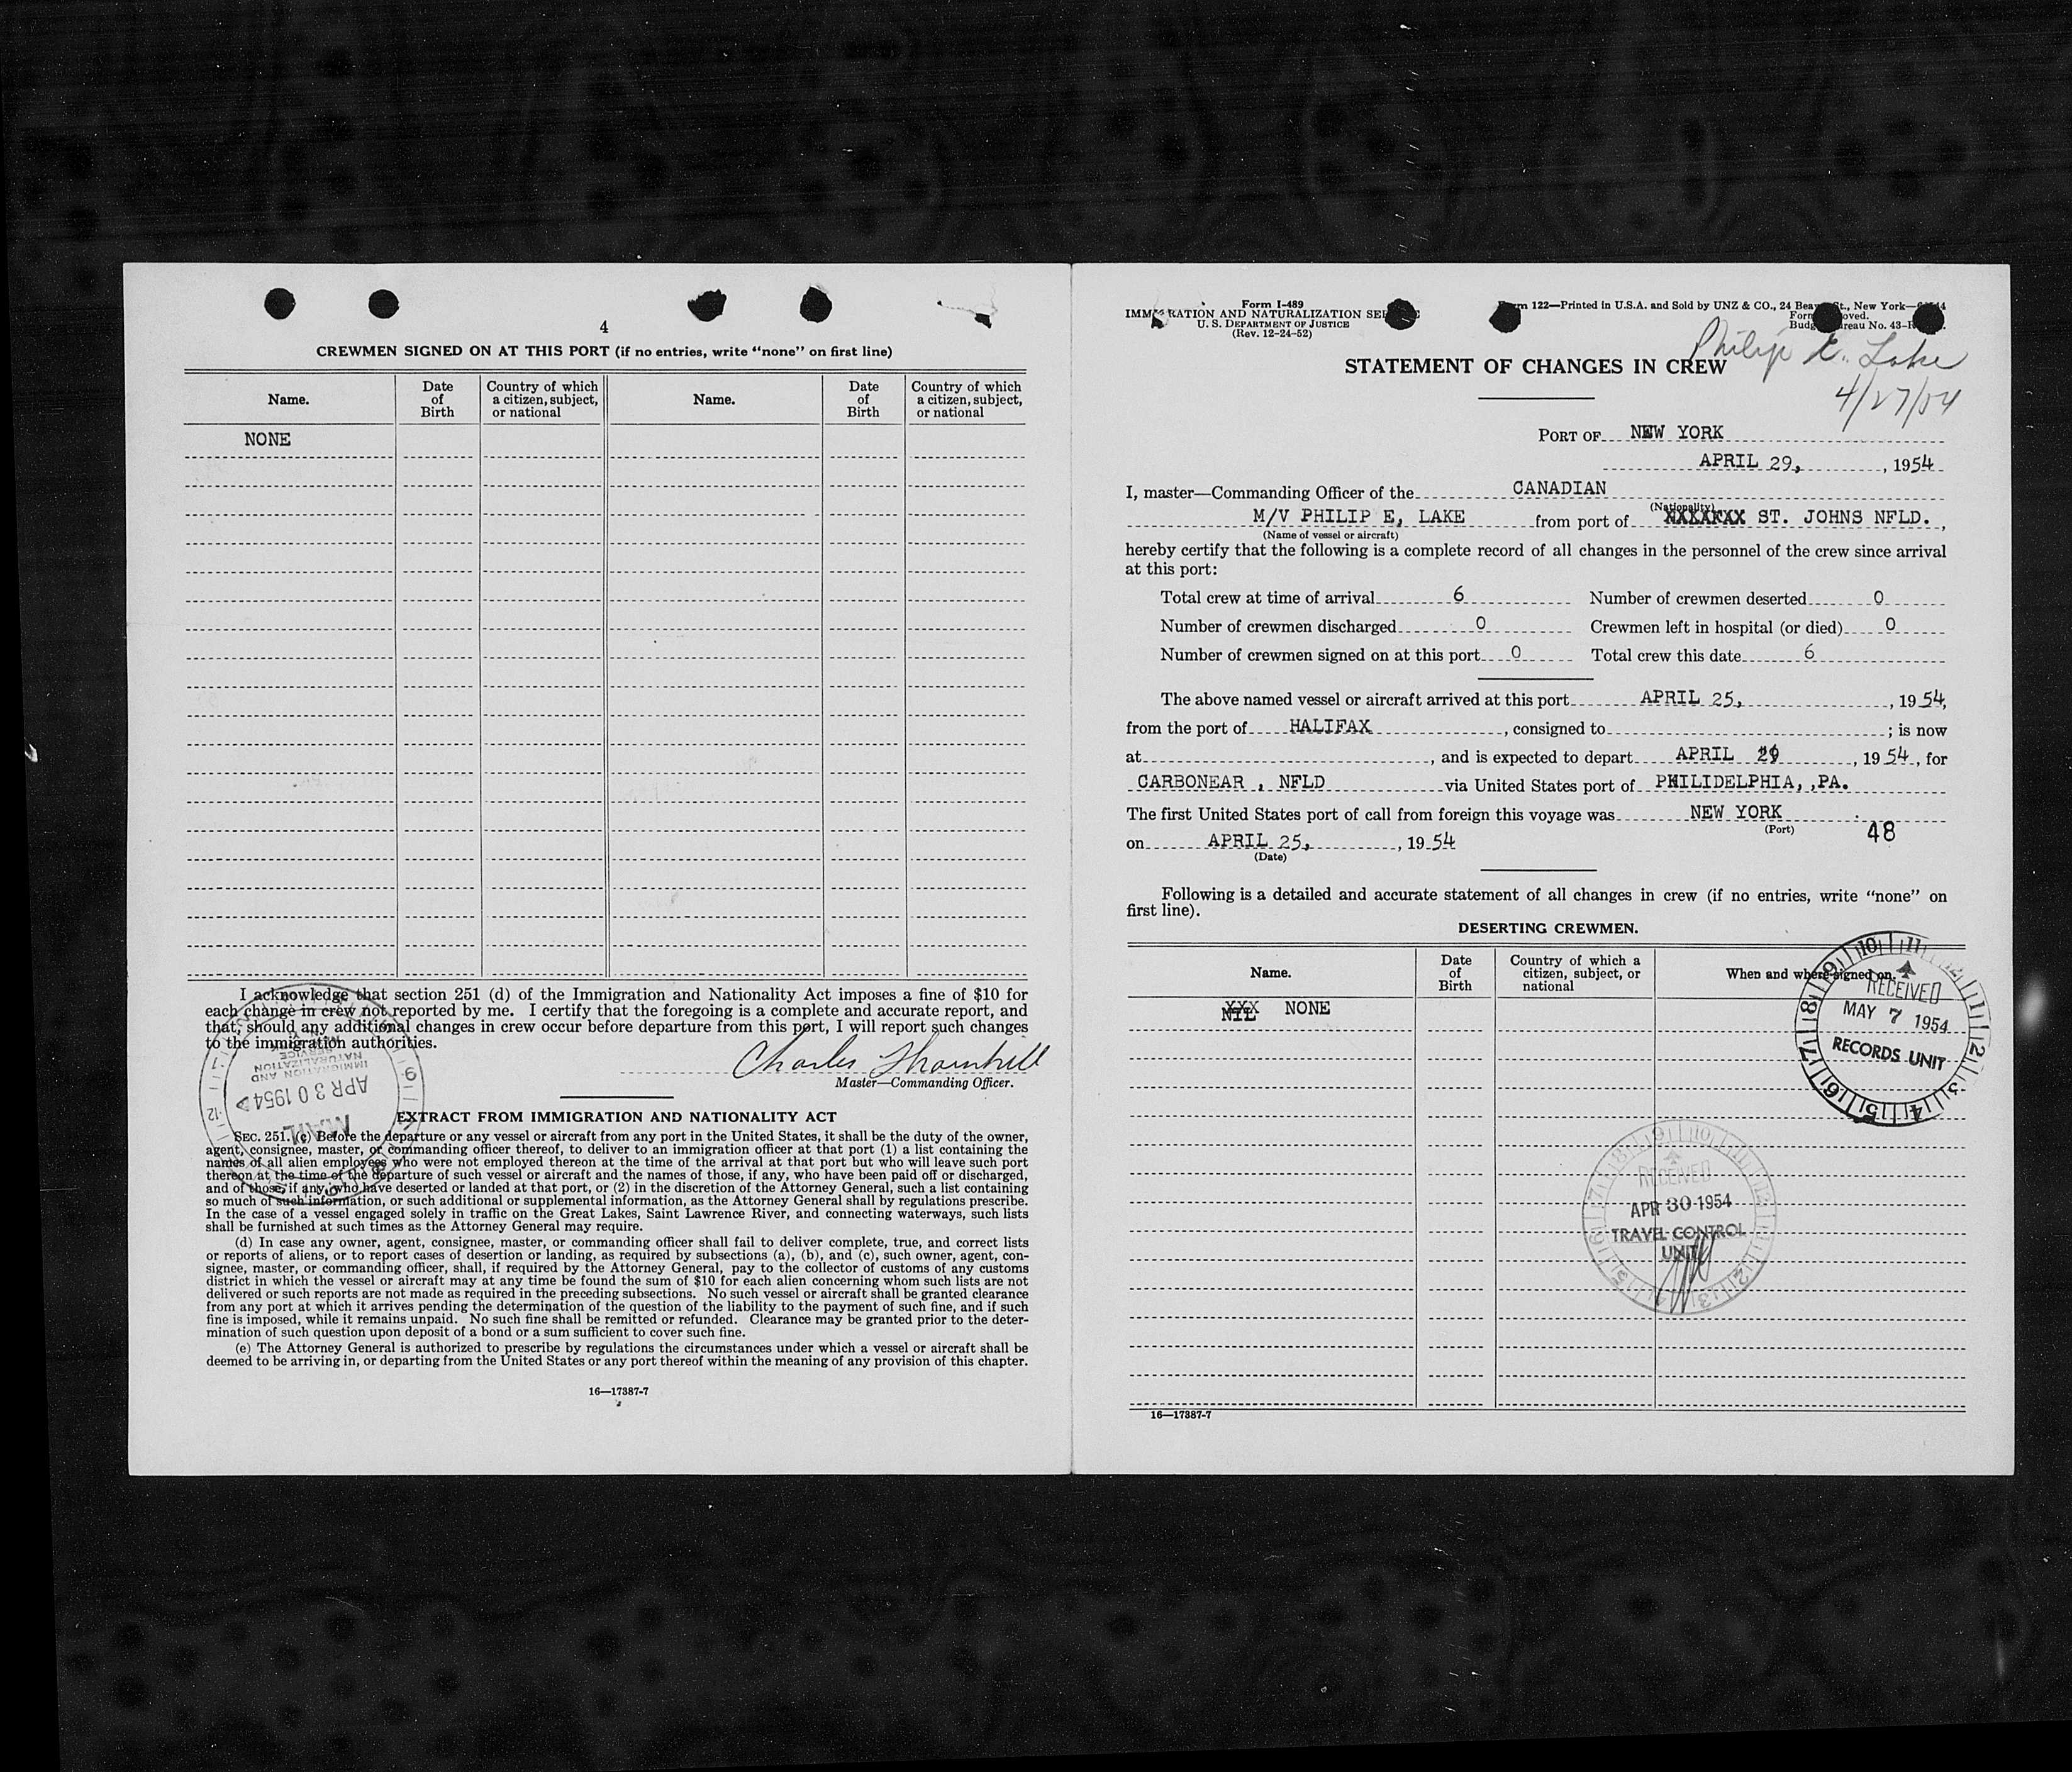 4
CREWMEN SIGNED ON AT THIS PORT (if no entries, write “none” on first line)
Name. Date of Birth Country of which a citizen, subject, or national Name. Date of Birth Country of which a citizen, subject, or national
NONE
I acknowledge that section 251 (d) of the Immigration and Nationality Act imposes a fine of $10 for
each change in crew not reported by me. I certify that the foregoing is a complete and accurate report, and
that, should any additional changes in crew occur before departure from this port, I will report such changes
to the immigration authorities.
Charles Thornhill
Master—Commanding Officer.
MAIL
APR 30 1954
IMMIGRATION AND
NATURALIZATION
SERVICE
EXTRACT FROM IMMIGRATION AND NATIONALITY ACT
SEC. 251. (c) Before the departure or any vessel or aircraft from any port in the United States, it shall be the duty of the owner,
agent, consignee, master, or commanding officer thereof, to deliver to an immigration officer at that port (1) a list containing the
names of all alien employees who were not employed thereon at the time of the arrival at that port but who will leave such port
thereon at the time of the departure of such vessel or aircraft and the names of those, if any, who have been paid off or discharged,
and of those, if any, who have deserted or landed at that port, or (2) in the discretion of the Attorney General, such a list containing
so much of such information, or such additional or supplemental information, as the Attorney General shall by regulations prescribe.
In the case of a vessel engaged solely in traffic on the Great Lakes, Saint Lawrence River, and connecting waterways, such lists
shall be furnished at such times as the Attorney General may require.
(d) In case any owner, agent, consignee, master, or commanding officer shall fail to deliver complete, true, and correct lists
or reports of aliens, or to report cases of desertion or landing, as required by subsections (a), (b), and (c), such owner, agent, con-
signee, master, or commanding officer, shall, if required by the Attorney General, pay to the collector of customs of any customs
district in which the vessel or aircraft may at any time be found the sum of $10 for each alien concerning whom such lists are not
delivered or such reports are not made as required in the preceding subsections. No such vessel or aircraft shall be granted clearance
from any port at which it arrives pending the determination of the question of the liability to the payment of such fine, and if such
fine is imposed, while it remains unpaid. No such fine shall be remitted or refunded. Clearance may be granted prior to the deter-
mination of such question upon deposit of a bond or a sum sufficient to cover such fine.
(e) The Attorney General is authorized to prescribe by regulations the circumstances under which a vessel or aircraft shall be
deemed to be arriving in, or departing from the United States or any port thereof within the meaning of any provision of this chapter.
16—17387-7
Form I-489
IMMIGRATION AND NATURALIZATION
U. S. DEPARTMENT OF JUSTICE
(Rev. 12-24-52)
122—Printed in U.S.A. and Sold by UNZ & CO., 24 New York
Bureau No.
Philip E. Lake
4/27/54
STATEMENT OF CHANGES IN CREW
PORT OF NEW YORK
APRIL 29, , 1954
I, master—Commanding Officer of the CANADIAN
(Nationality)
M/V PHILIP E, LAKE from port of ST. JOHNS NFLD. ,
(Name of vessel or aircraft)
hereby certify that the following is a complete record of all changes in the personnel of the crew since arrival
at this port:
Total crew at time of arrival 6 Number of crewmen deserted 0
Number of crewmen discharged 0 Crewmen left in hospital (or died) 0
Number of crewmen signed on at this port 0 Total crew this date 6
The above named vessel or aircraft arrived at this port APRIL 25, , 1954,
from the port of HALIFAX , consigned to ; is now
at , and is expected to depart APRIL 29 , 1954, for
CARBONEAR , NFLD via United States port of PHILIDELPHIA, ,PA.
The first United States port of call from foreign this voyage was NEW YORK
(Port)
48
on APRIL 25, , 1954
(Date)
Following is a detailed and accurate statement of all changes in crew (if no entries, write “none” on
first line).
DESERTING CREWMEN.
Name. Date of Birth Country of which a citizen, subject, or national When and where signed on.
NIL NONE
RECEIVED
MAY 7 1954
RECORDS UNIT
RECEIVED
APR 30 1954
TRAVEL CONTROL
UNIT
16—17387-7